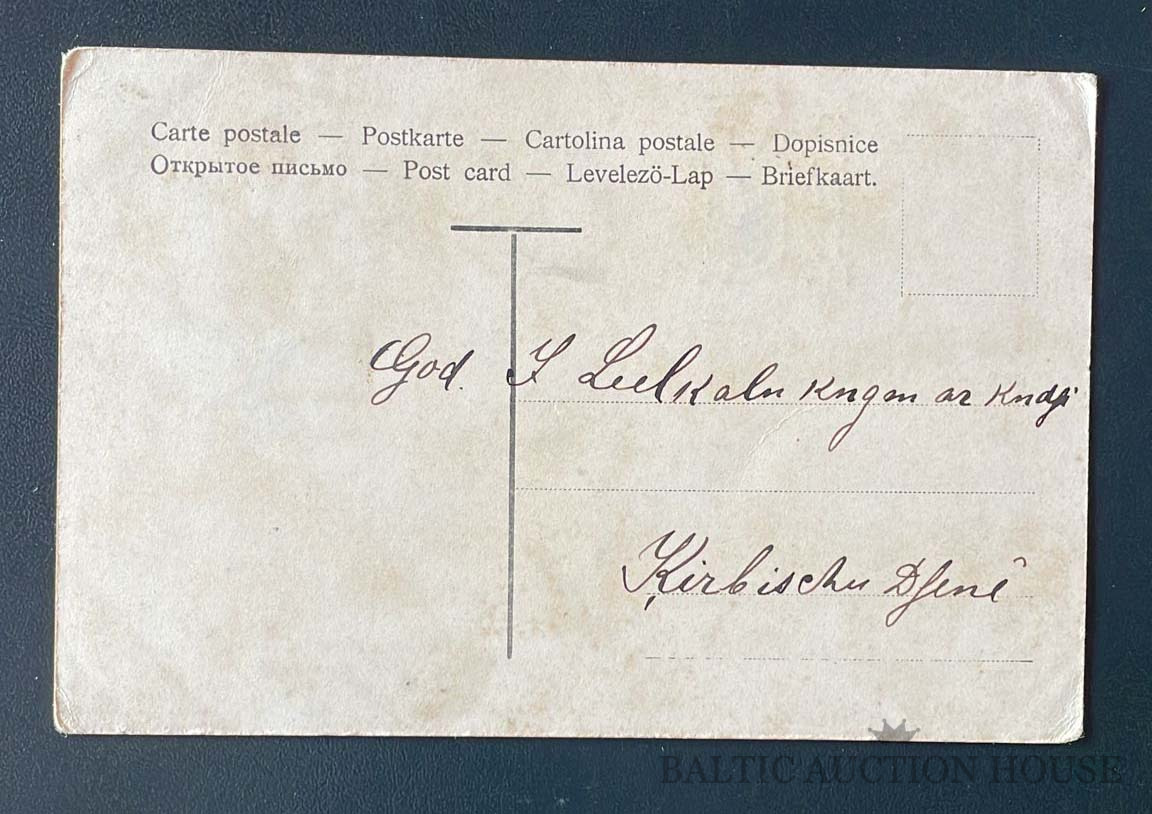 Carte postale — Postkarte — Cartolina postale — Dopisnice
Открытое письмо — Post card — Levelezö-Lap — Briefkaart.
God. J Leelkaln kngm ar kndji
Ķirbischu Dsenê
BALTIC AUCTION HOUSE